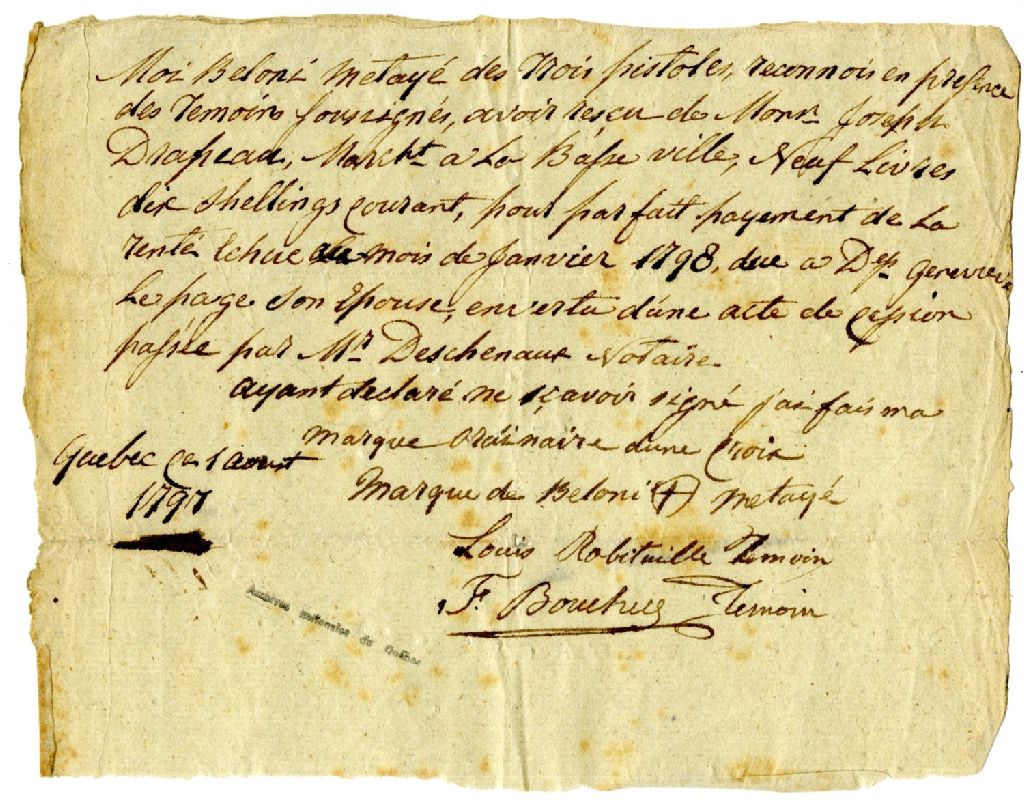 Moi Beloni Metayé des Trois pistoles, reconnois en presence
des Temoins soussignés, avoir resçu de Monsr. Joseph
Drapeau, Marcht. a La Basse ville, Neuf Livres
dix shellings courant, pour parfait payement de La
rente Echue au mois de Janvier 1798, due a Dep Genevieve
Le page son Epouse, en vertu d'une acte de cession
passée par Mr. Deschenaux Notaire.
ayant declaré ne sçavoir signé j'ai fais ma
marque ordinaire d'une Croix
Quebec ce 1 aoust
1797
Marque de Beloni + Metayé
Louis Robitaille Temoin
F. Boucher Temoin
Archives Nationales du Québec